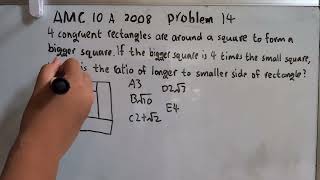 AMC 10 A 2008 problem 14
4 congruent rectangles are around a square to form a
bigger square. If the bigger square is 4 times the small square,
is the ratio of longer to smaller side of rectangle?
A3 D2√3
B√10 E4
C2+√2